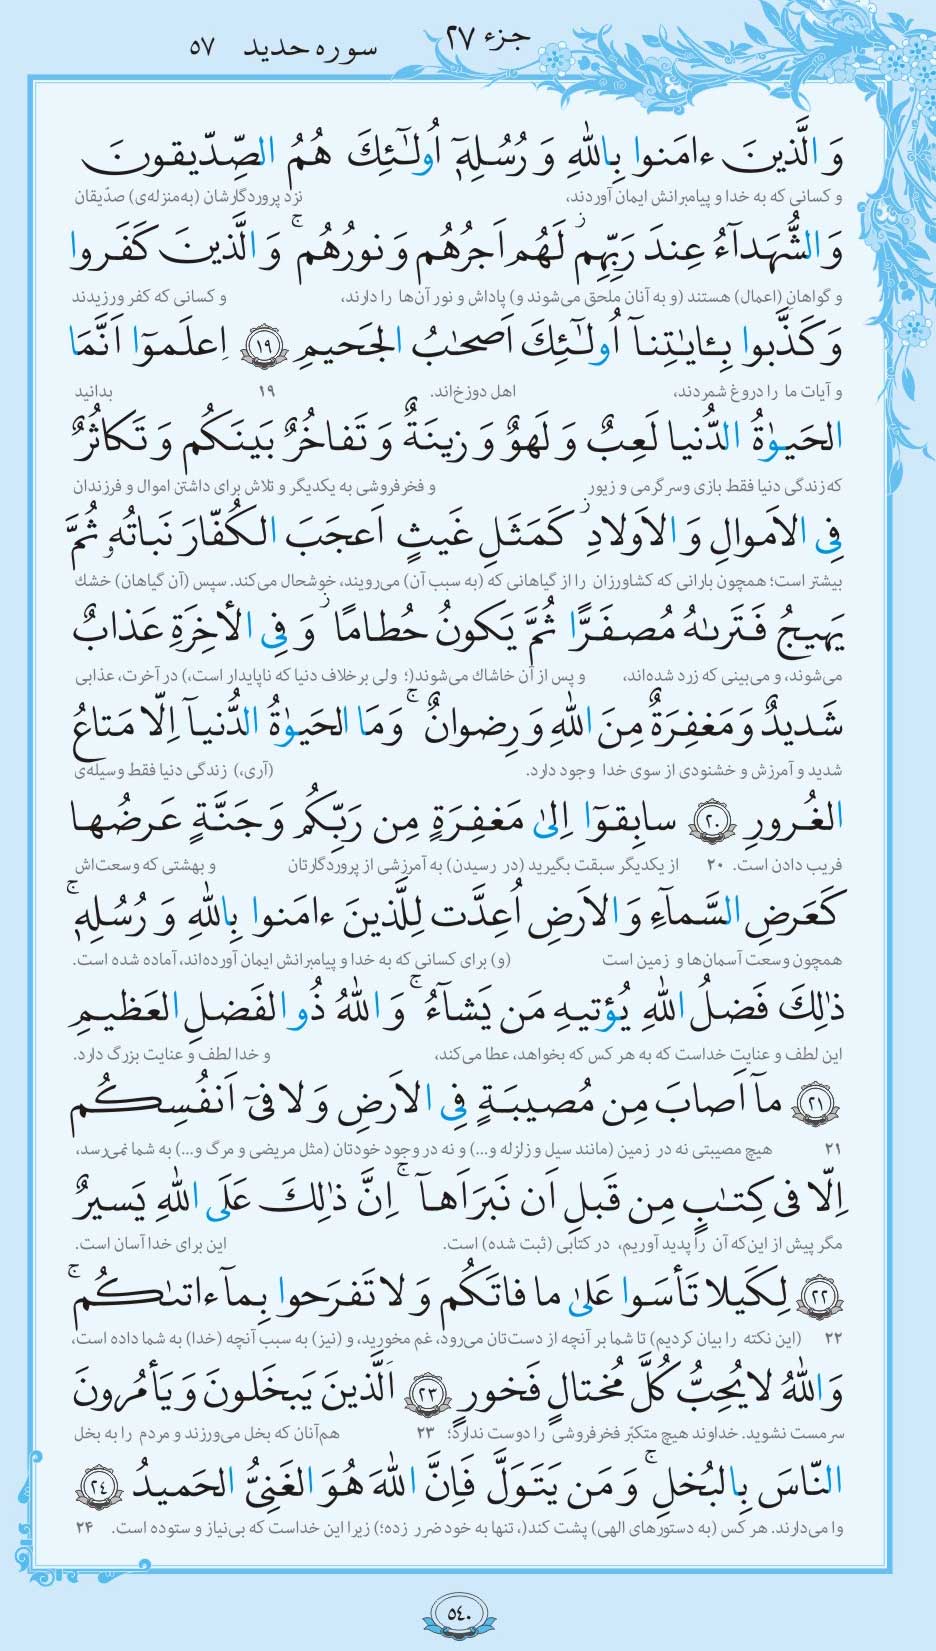 جزء ۲۷
سوره حدید ۵۷
وَ الَّذینَ ءامَنوا بِاللهِ وَ رُسُلِهِۤ اُولٰۤئِكَ هُمُ الصِّدّیقونَ
و کسانی که به خدا و پیامبرانش ایمان آوردند، نزد پروردگارشان (به‌منزله‌ی) صدّیقان
وَ الشُّهَدآءُ عِندَ رَبِّهِم ۖ لَهُم اَجرُهُم وَ نورُهُم ۚ وَ الَّذینَ كَفَروا
و گواهانِ (اعمال) هستند (و به آنان ملحق می‌شوند و) پاداش و نور آن‌ها را دارند، و کسانی که کفر ورزیدند
وَ كَذَّبوا بِـٔایاتِنآ اُولٰۤئِكَ اَصحٰبُ الجَحیمِ ﴿۱۹﴾ اِعلَموۤا اَنَّمَا
و آیات ما را دروغ شمردند، اهل دوزخ‌اند. ۱۹ بدانید
الحَیوٰةُ الدُّنیا لَعِبٌ وَ لَهوٌ وَ زینَةٌ وَ تَفاخُرٌ بَینَكُم وَ تَكاثُرٌ
که زندگی دنیا فقط بازی وسرگرمی و زیور و فخرفروشی به یکدیگر و تلاش برای داشتن اموال و فرزندان
فِی الاَموالِ وَ الاَولادِ ۖ كَمَثَلِ غَیثٍ اَعجَبَ الكُفّارَ نَباتُهو ثُمَّ
بیشتر است؛ همچون بارانی که کشاورزان را از گیاهانی که (به سبب آن) می‌رویند، خوشحال می‌کند. سپس (آن گیاهان) خشك
یَهیجُ فَتَرىٰهُ مُصفَرًّا ثُمَّ یَكونُ حُطامًا ۖ وَ فِی الأخِرَةِ عَذابٌ
می‌شوند، و می‌بینی که زرد شده‌اند، و پس از آن خاشاك می‌شوند(؛ ولی برخلاف دنیا که ناپایدار است،) در آخرت، عذابی
شَدیدٌ وَ مَغفِرَةٌ مِنَ اللهِ وَ رِضوانٌ ۚ وَ مَا الحَیوٰةُ الدُّنیاۤ اِلّا مَتاعُ
شدید و آمرزش و خشنودی از سوی خدا وجود دارد. (آری،) زندگی دنیا فقط وسیله‌ی
الغُرورِ ﴿۲۰﴾ سابِقوۤا اِلىٰ مَغفِرَةٍ مِن رَبِّكُم وَ جَنَّةٍ عَرضُها
فریب دادن است. ۲۰ از یکدیگر سبقت بگیرید (در رسیدن) به آمرزشی از پروردگارتان و بهشتی که وسعت‌اش
كَعَرضِ السَّمآءِ وَ الاَرضِ اُعِدَّت لِلَّذینَ ءامَنوا بِاللهِ وَ رُسُلِهٖ ۚ
همچون وسعت آسمان‌ها و زمین است (و) برای کسانی که به خدا و پیامبرانش ایمان آورده‌اند، آماده شده است.
ذٰلِكَ فَضلُ اللهِ یُؤتیهِ مَن یَشآءُ ۚ وَ اللهُ ذُو الفَضلِ العَظیمِ
این لطف و عنایت خداست که به هر کس که بخواهد، عطا می‌کند، و خدا لطف و عنایت بزرگ دارد.
﴿۲۱﴾ ماۤ اَصابَ مِن مُصیبَةٍ فِی الاَرضِ وَ لا فیۤ اَنفُسِكُم
۲۱ هیچ مصیبتی نه در زمین (مانند سیل و زلزله و...) و نه در وجود خودتان (مثل مریضی و مرگ و...) به شما نمی‌رسد،
اِلّا فی كِتٰبٍ مِن قَبلِ اَن نَبرَاَهاۤ ۚ اِنَّ ذٰلِكَ عَلَی اللهِ یَسیرٌ
مگر پیش از این‌که آن را پدید آوریم، در کتابی (ثبت شده) است. این برای خدا آسان است.
﴿۲۲﴾ لِكَیلا تَأسَوا عَلىٰ ما فاتَكُم وَ لا تَفرَحوا بِماۤ ءاتىٰكُم ۚ
۲۲ (این نکته را بیان کردیم) تا شما بر آنچه از دست‌تان می‌رود، غم مخورید، و (نیز) به سبب آنچه (خدا) به شما داده است،
وَ اللهُ لا یُحِبُّ كُلَّ مُختالٍ فَخورٍ ﴿۲۳﴾ اَلَّذینَ یَبخَلونَ وَ یَأمُرونَ
سرمست نشوید. خداوند هیچ متکبّر فخرفروشی را دوست ندارد؛ ۲۳ هم‌آنان که بخل می‌ورزند و مردم را به بخل
النّاسَ بِالبُخلِ ۚ وَ مَن یَتَوَلَّ فَاِنَّ اللهَ هُوَ الغَنِیُّ الحَمیدُ ﴿۲۴﴾
وا می‌دارند. هر کس (به دستورهای الهی) پشت کند(، تنها به خود ضرر زده؛) زیرا این خداست که بی‌نیاز و ستوده است. ۲۴
۵۴۰